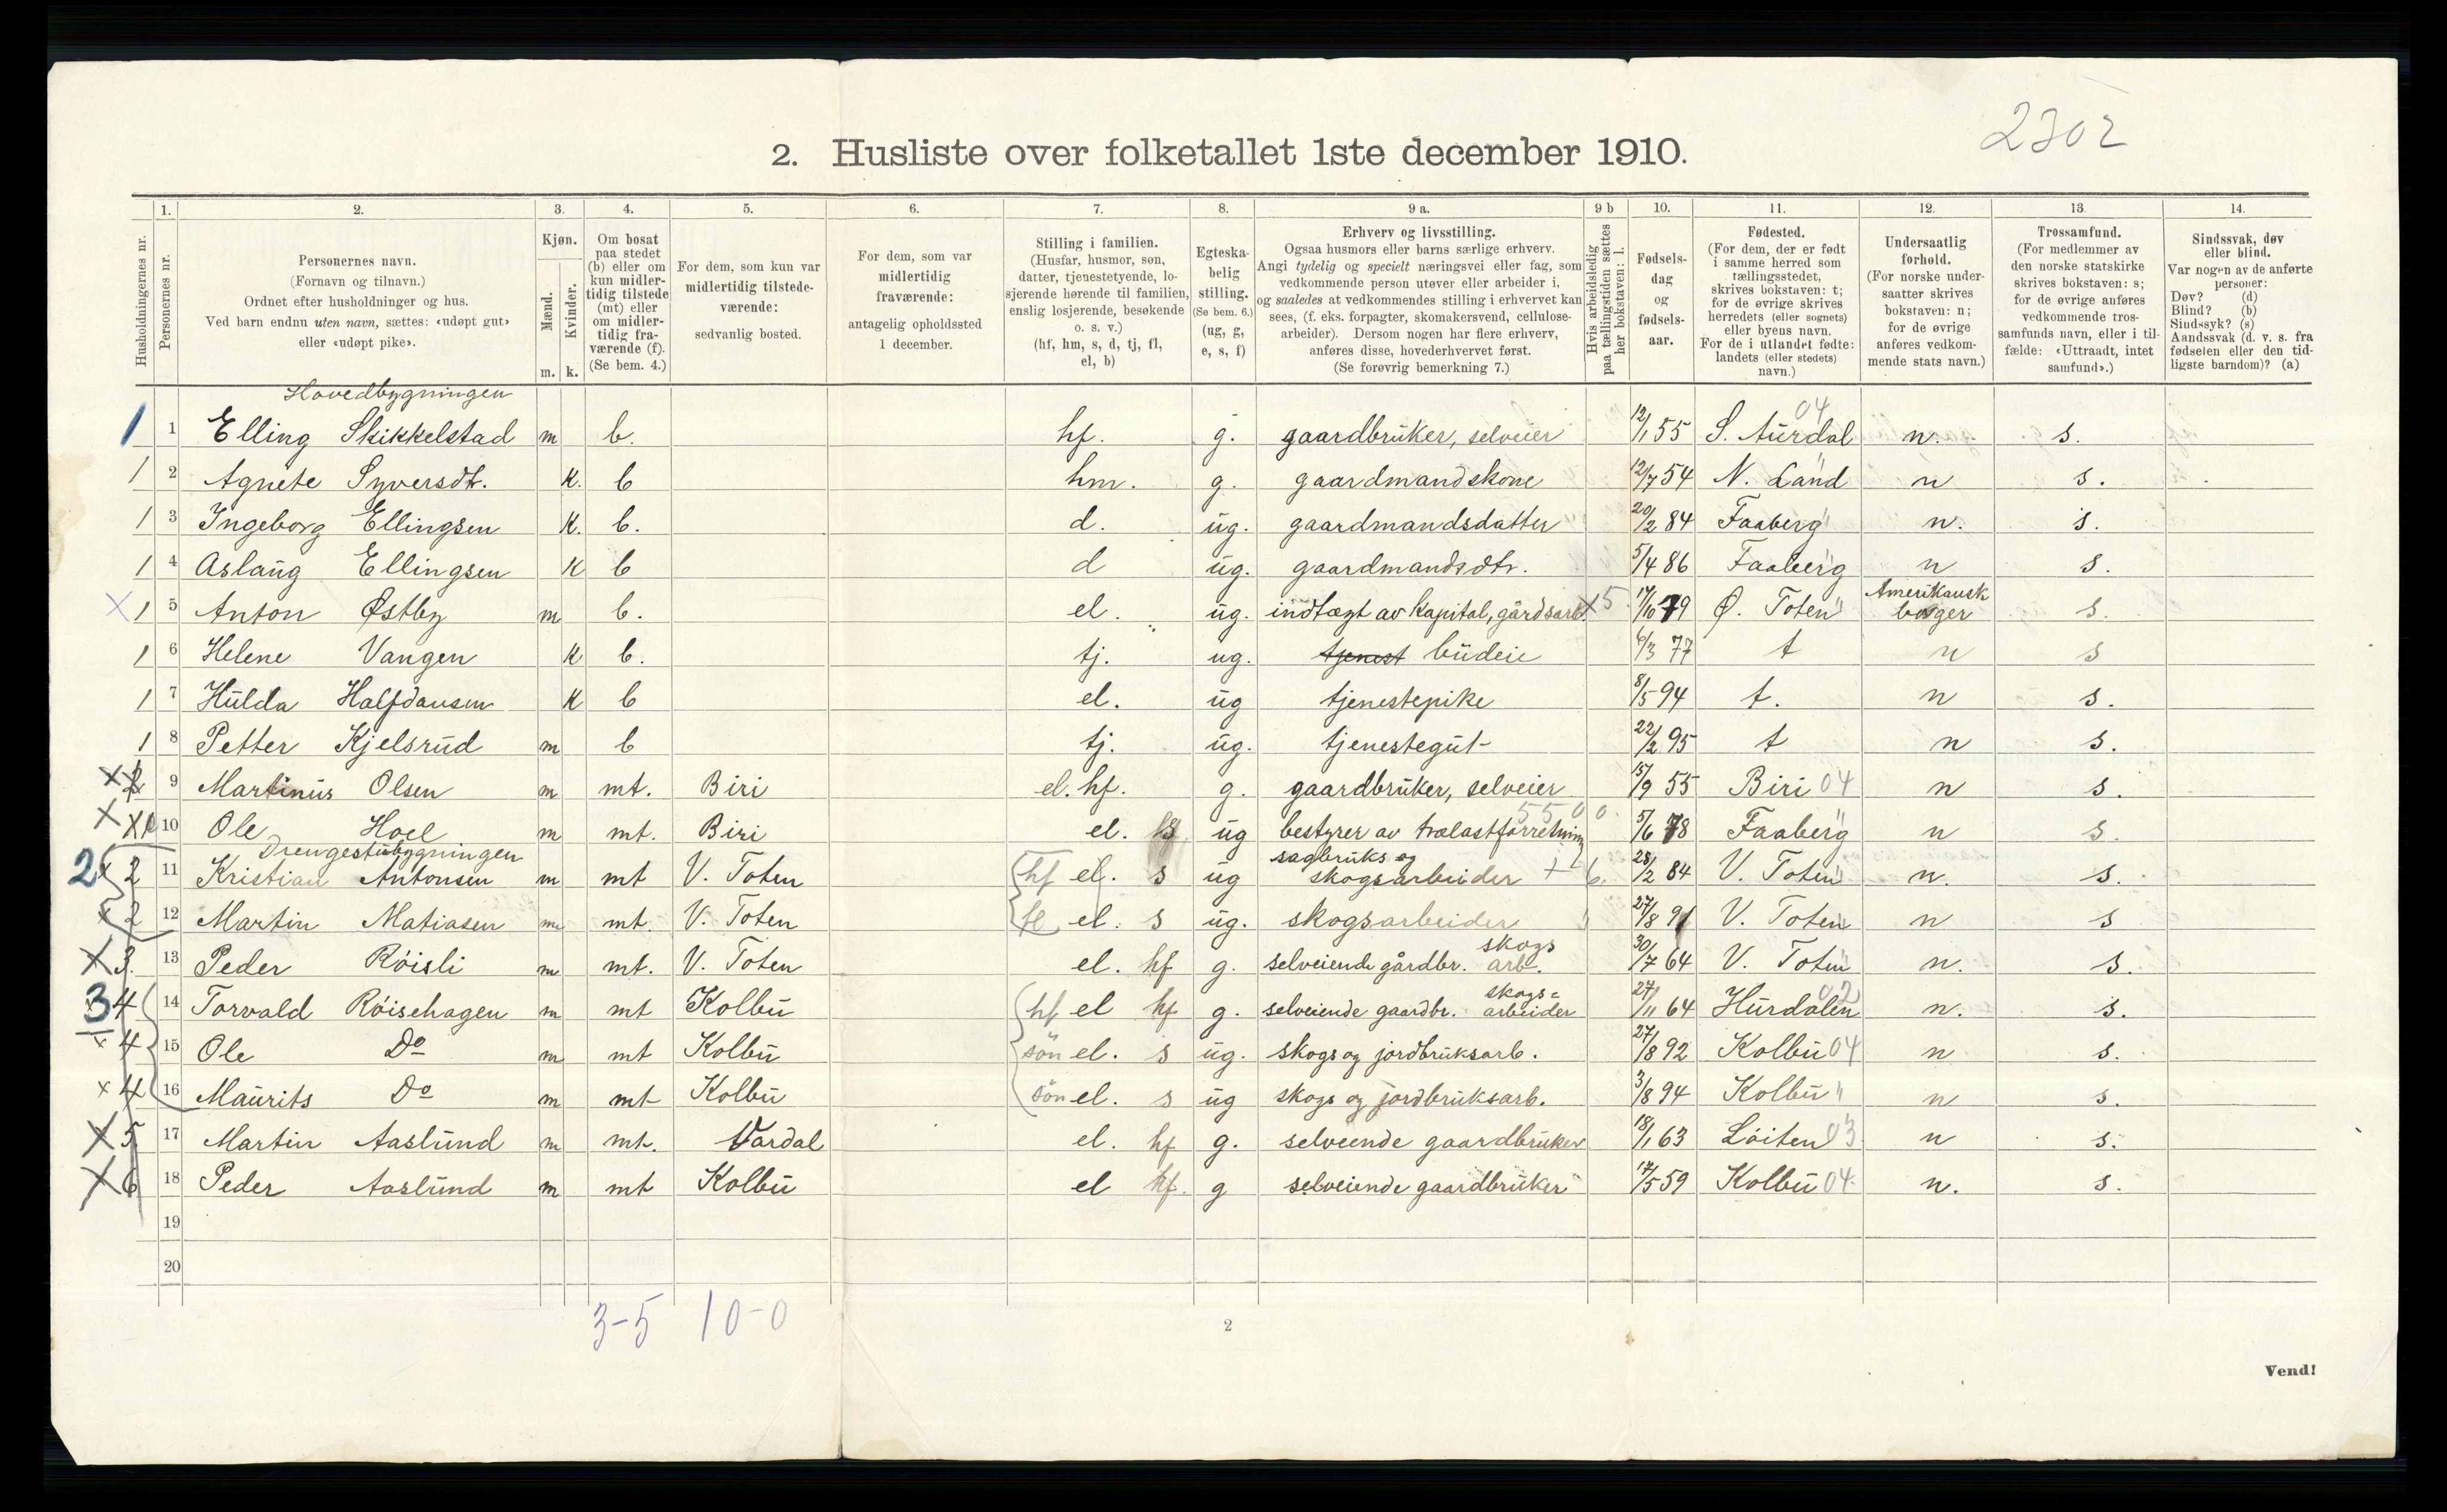 2302
2. Husliste over folketallet 1ste december 1910.
Husholdningernes nr.
1.
Personernes nr.
2.
Personernes navn.
(Fornavn og tilnavn.)
Ordnet efter husholdninger og hus.
Ved barn endnu uten navn, sættes: «udøpt gut»
eller «udøpt pike».
3.
Kjøn.
Mænd.
Kvinder.
m. k.
4.
Om bosat
paa stedet
(b) eller om
kun midler-
tidig tilstede
(mt) eller
om midler-
tidig fra-
værende (f).
(Se bem. 4.)
5.
For dem, som kun var
midlertidig tilstede-
værende:
sedvanlig bosted.
6.
For dem, som var
midlertidig
fraværende:
antagelig opholdssted
1 december.
7.
Stilling i familien.
(Husfar, husmor, søn,
datter, tjenestetyende, lo-
sjerende hørende til familien,
enslig losjerende, besøkende
o. s. v.)
(hf, hm, s, d, tj, fl,
el, b)
8.
Egteska-
belig
stilling.
(Se bem. 6.)
(ug, g,
e, s, f)
9 a.
Erhverv og livsstilling.
Ogsaa husmors eller barns særlige erhverv.
Angi tydelig og specielt næringsvei eller fag, som
vedkommende person utøver eller arbeider i,
og saaledes at vedkommendes stilling i erhvervet kan
sees, (f. eks. forpagter, skomakersvend, cellulose-
arbeider). Dersom nogen har flere erhverv,
anføres disse, hovederhvervet først.
(Se forøvrig bemerkning 7.)
9 b
Hvis arbeidsledig
paa tællingstiden sættes
her bokstaven: l.
10.
Fødsels-
dag
og
fødsels-
aar.
11.
Fødested.
(For dem, der er født
i samme herred som
tællingsstedet,
skrives bokstaven: t;
for de øvrige skrives
herredets (eller sognets)
eller byens navn.
For de i utlandet fødte:
landets (eller stedets)
navn.)
12.
Undersaatlig
forhold.
(For norske under-
saatter skrives
bokstaven: n;
for de øvrige
anføres vedkom-
mende stats navn.)
13.
Trossamfund.
(For medlemmer av
den norske statskirke
skrives bokstaven: s;
for de øvrige anføres
vedkommende tros-
samfunds navn, eller i til-
fælde: «Uttraadt, intet
samfund».)
14.
Sindssvak, døv
eller blind.
Var nogen av de anførte
personer:
Døv? (d)
Blind? (b)
Sindssyk? (s)
Aandssvak (d. v. s. fra
fødselen eller den tid-
ligste barndom)? (a)
Hovedbygningen
1 1 Elling Skikkelstad m b. hf. g. gaardbruker, selveier 12/1 55 S. Aurdal 04 n. s.
1 2 Agnete Syversdt. k. b hm. g. gaardmandskone 12/7 54 N. Land " n s.
1 3 Ingeborg Ellingsen k. b. d. ug. gaardmandsdatter 20/2 84 Faaberg " n. s.
1 4 Aslaug Ellingsen k b d ug. gaardmandsdtr. 5/4 86 Faaberg " n s.
X 1 5 Anton Østby m b. el. ug. indtægt av kapital, gårdsarb. X5 17/10 79 Ø. Toten " Amerikansk borger s.
1 6 Helene Vangen k b. tj. ug. tjenest budeie 6/3 77 t n s
1 7 Hulda Halfdansen k b el. ug tjenestepike 8/5 94 t. n s.
1 8 Petter Kjelsrud m b tj. ug. tjenestegut 22/2 95 t n s.
X 2 9 Martinus Olsen m mt. Biri el. hf. g. gaardbruker, selveier 15/9 55 Biri 04 n s.
X X1 10 Ole Hoel m mt. Biri el. ug bestyrer av trælastforretning 5500 5/6 78 Faaberg " n s.
Drengestubygningen
2 x 2 11 Kristian Antonsen m mt V. Toten hf el. s ug sagbruks og skogsarbeider + 6 28/2 84 V. Toten " n. s.
x 2 12 Martin Matiasen m mt. V. Toten fl el. s ug. skogsarbeider 27/8 91 V. Toten " n s
X 3. 13 Peder Röisli m mt. V. Toten el. hf g. selveiende gårdbr. skogs arb. 30/7 64 V. Toten " n. s.
3 4 14 Torvald Röisehagen m mt Kolbu hf el hf g. selveiende gaardbr. skogs= arbeider 27/11 64 Hurdalen 02 n. s.
x 4 15 Ole Do m mt Kolbu sön el. s ug. skogs og jordbruksarb. 27/8 92 Kolbu 04 n s.
x 4 16 Maurits Do m mt Kolbu sön el. s ug skogs og jordbruksarb. 3/8 94 Kolbu " n s.
X 5 17 Martin Aaslund m mt. Vardal el. hf g. selveende gaardbruker 18/1 63 Löiten 03 n s.
X 6 18 Peder Aaslund m mt Kolbu el hf. g selveiende gaardbruker 17/5 59 Kolbu 04 n. s.
19
20
3-5 10-0
2
Vend!